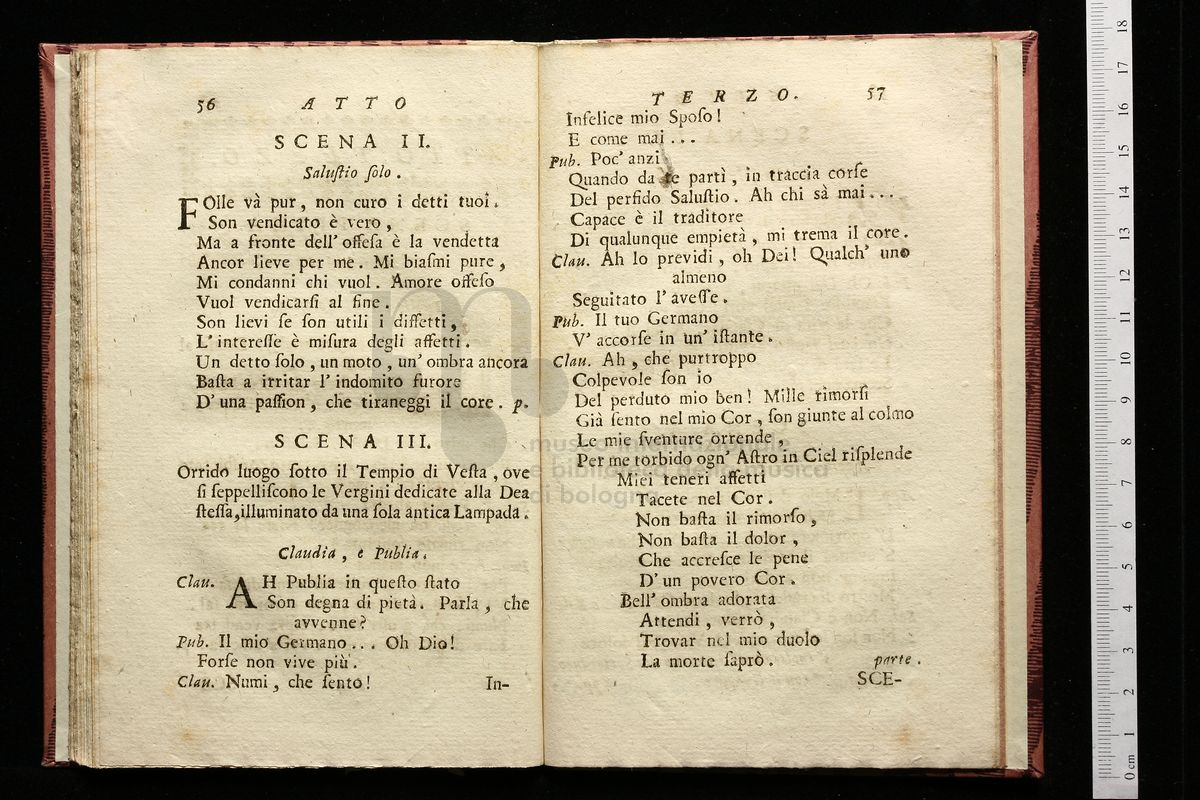 56 ATTO
SCENA II.
Saluſtio ſolo.
FOlle và pur, non curo i detti tuoi.
Son vendicato è vero,
Ma a fronte dell' offeſa è la vendetta
Ancor lieve per me. Mi biaſmi pure,
Mi condanni chi vuol. Amore offeſo
Vuol vendicarſi al fine.
Son lievi ſe ſon utili i diffetti,
L' intereſſe è miſura degli affetti.
Un detto ſolo, un moto, un' ombra ancora
Baſta a irritar l' indomito furore
D' una paſſion, che tiraneggi il core. p.
SCENA III.
Orrido luogo ſotto il Tempio di Veſta, ove
ſi ſeppelliſcono le Vergini dedicate alla Dea
ſteſſa, illuminato da una ſola antica Lampada.
Claudia, e Publia.
Clau. AH Publia in queſto ſtato
Son degna di pietà. Parla, che
avvenne?
Pub. Il mio Germano... Oh Dio!
Forſe non vive più.
Clau. Numi, che ſento!
In-
TERZO. 57
Infelice mio Spoſo!
E come mai...
Pub. Poc' anzi
Quando da te partì, in traccia corſe
Del perfido Saluſtio. Ah chi sà mai...
Capace è il traditore
Di qualunque empietà, mi trema il core.
Clau. Ah lo previdi, oh Dei! Qualch' uno
almeno
Seguitato l' aveſſe.
Pub. Il tuo Germano
V' accorſe in un' iſtante.
Clau. Ah, che purtroppo
Colpevole ſon io
Del perduto mio ben! Mille rimorſi
Già ſento nel mio Cor, ſon giunte al colmo
Le mie ſventure orrende,
Per me torbido ogn' Aſtro in Ciel riſplende
Miei teneri affetti
Tacete nel Cor.
Non baſta il rimorſo,
Non baſta il dolor,
Che accreſce le pene
D' un povero Cor.
Bell' ombra adorata
Attendi, verrò,
Trovar nel mio duolo
La morte ſaprò. parte.
SCE-
museo internazionale
e biblioteca della musica
di bologna
0 cm 1 2 3 4 5 6 7 8 9 10 11 12 13 14 15 16 17 18